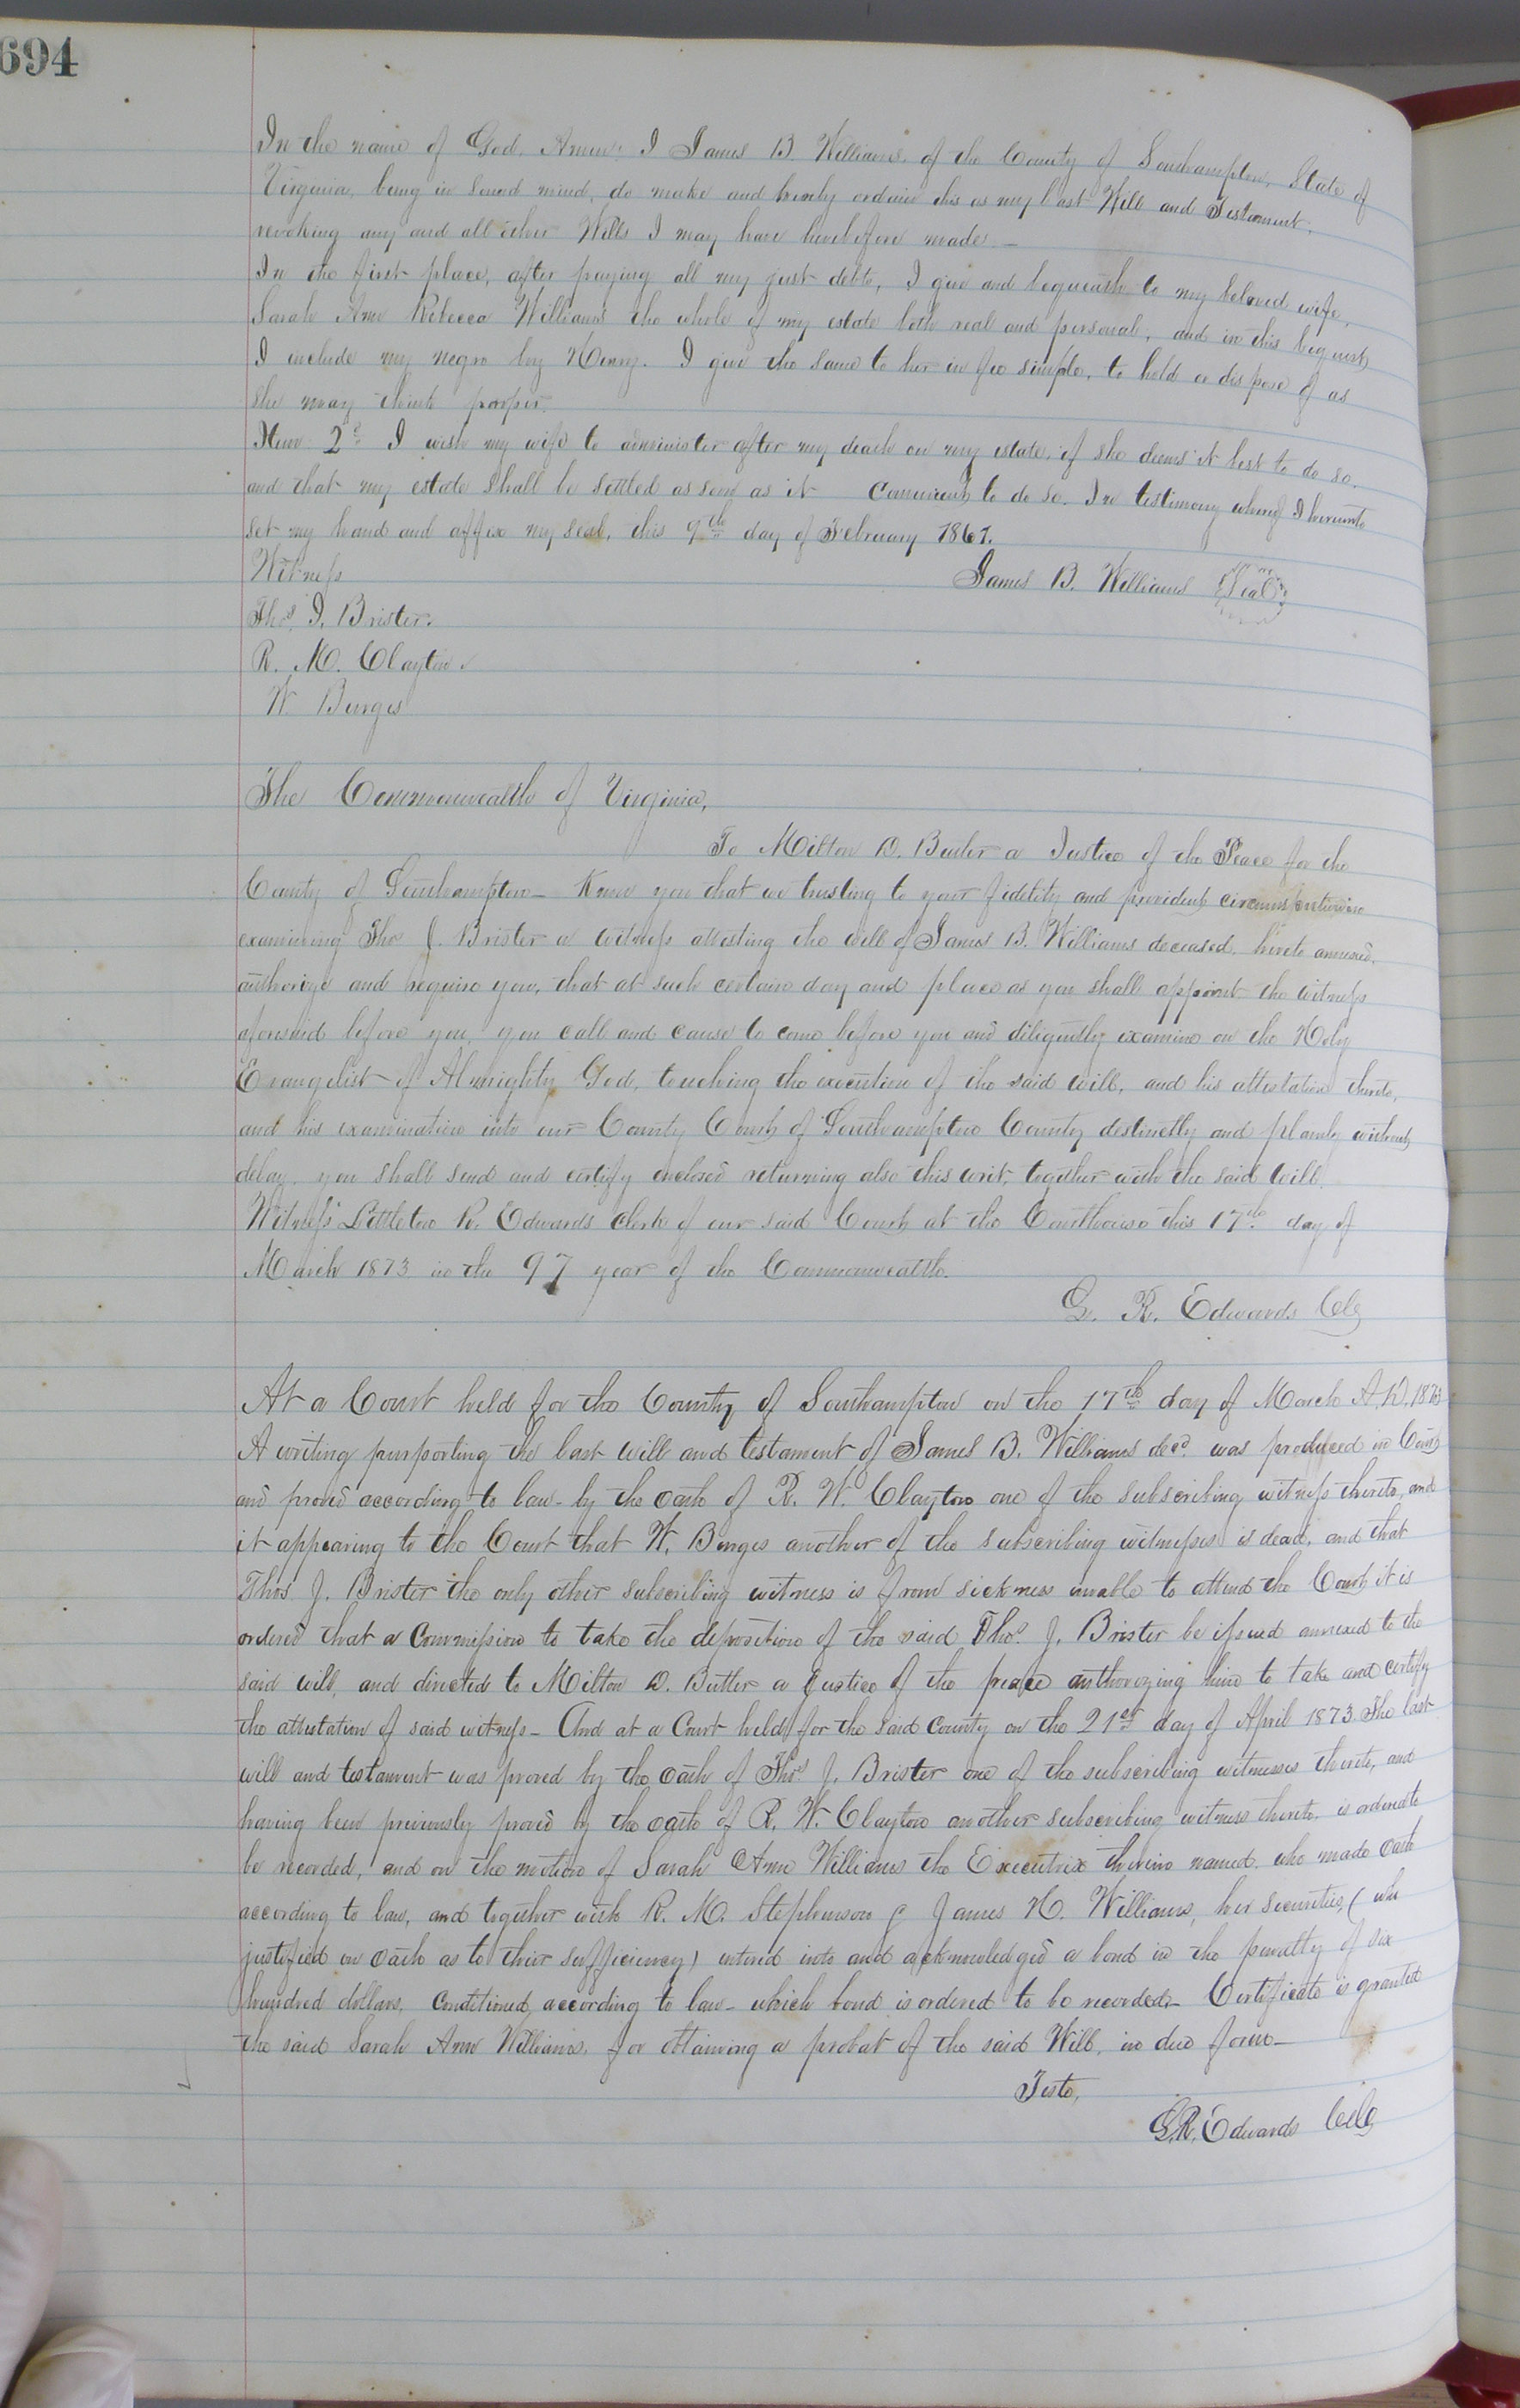 694
In the name of God. Amen! I James B. Williams, of the County of Southampton, State of
Virginia, being in sound mind, do make and hereby ordain this as my last Will and Testament,
revoking any and all other Wills I may have heretofore made. —
In the first place, after paying all my just debts, I give and bequeath to my beloved wife,
Sarah Ann Rebecca Williams the whole of my estate both real and personal, and in this bequest,
I include my negro boy Henry. I give the same to her in fee simple, to hold or dispose of as
she may think proper.
Item 2d I wish my wife to administer after my death on my estate, if she deems it best to do so.
and that my estate shall be settled as soon as it convenient to do so. In testimony whereof I hereunto
set my hand and affix my seal, this 9th day of February 1861.
Witness James B. Williams Seal
Thos J. Brister.
R. M. Clayton.
W. Burges
The Commonwealth of Virginia,
To Milton D. Butler a Justice of the Peace for the
County of Southampton — Know you that we trusting to your fidelity and provident circumspection in
examining Thos J. Brister a witness attesting the will of James B. Williams deceased, hereto annexed,
authorize and require you, that at such certain day and place as you shall appoint the witness
aforesaid before you, you call and cause to come before you and diligently examine on the Holy
Evangelist of Almighty God, touching the execution of the said will, and his attestation thereto,
and his examination into our County Court of Southampton County destinctly and planly without
delay, you shall send and certify enclosed returning also this writ, together with the said will.
Witness Littleton R. Edwards Clerk of our said Court at the Courthouse this 17th day of
March 1873 in the 97 year of the Commonwealth.
L. R. Edwards Clk
At a Court held for the County of Southampton on the 17th day of March A.D. 1873
A writing purporting the last will and testament of James B. Williams decd. was produced in Court
and proved according to law by the oath of R. W. Clayton one of the subscribing witness thereto, and
it appearing to the Court that W. Burges another of the subscribing witnesses is dead, and that
Thos J. Brister the only other subscribing witness is from sickness unable to attend the Court it is
ordered that a Commission to take the deposition of the said Thos. J. Brister be issued annexed to the
said will, and directed to Milton D. Butler a Justice of the peace authorizing him to take and certify
the attestation of said witness — And at a Court held for the said County on the 21st day of April 1873 The last
will and testament was proved by the oath of Thos. J. Brister one of the subscribing witnesses thereto, and
having been previously proved by the oath of R. W. Clayton another subscribing witness thereto. is ordered to
be recorded, and on the motion of Sarah Ann Williams the Executrix therein named, who made oath
according to law, and together with R. M. Stephenson & James H. Williams, her securities, (who
justified on oath as to their sufficiency) entered into and acknowledged a bond in the penalty of six
hundred dollars, conditioned according to law — which bond is ordered to be recorded — Certificate is granted
the said Sarah Ann Williams, for obtaining a probat of the said Will, in due form —
Teste,
L. R. Edwards Clk